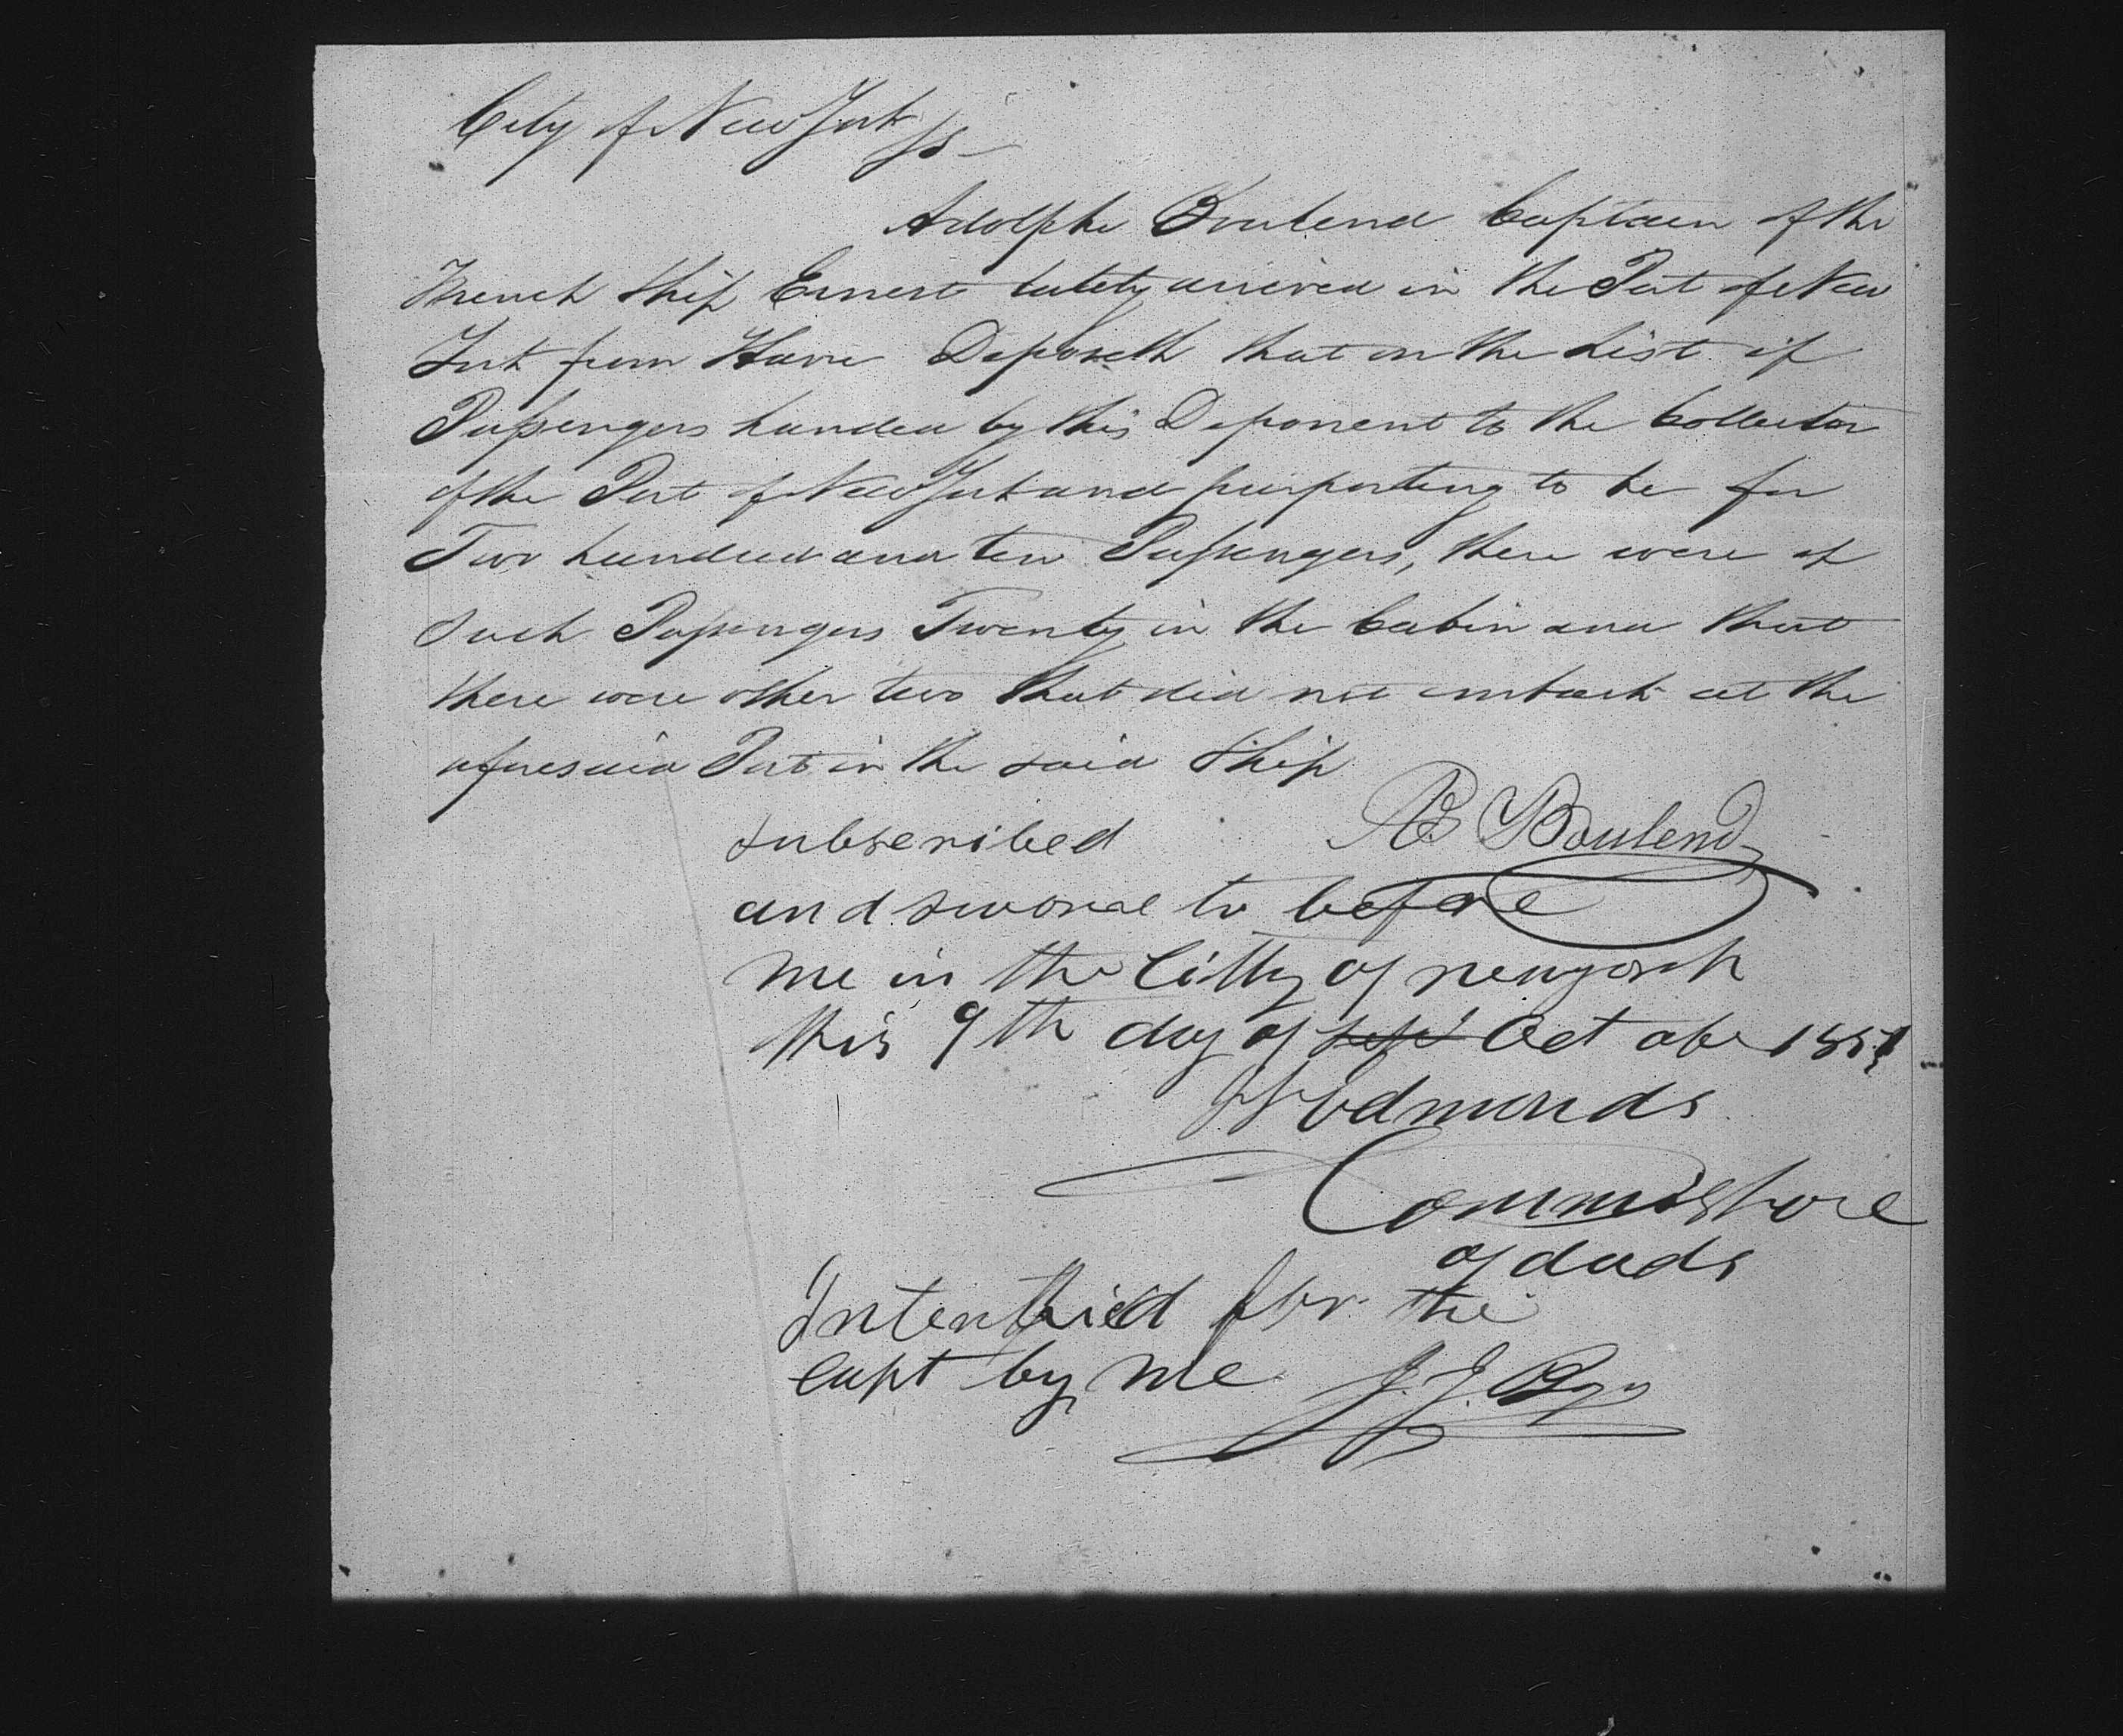 City of New York ss
Adolphe Boulend Captain of the
French Ship Ernest lately arived in the Port of New
York from Havre Deposeth that on the List of
Passengers handed by this Deponent to the Collector
of the Port of New York and purporting to be for
Two hundred and ten Passengers, there were of
such Passengers Twenty in the Cabin and that
there were other two that did not embark at the
aforesaid Port in the said Ship
subscribed Boulend
and sworae to before
me in the Citty of newyork
this 9th day of sept Octobe 1851
Edmonds
Commissione
of deeds
for the
capt by me J. J.